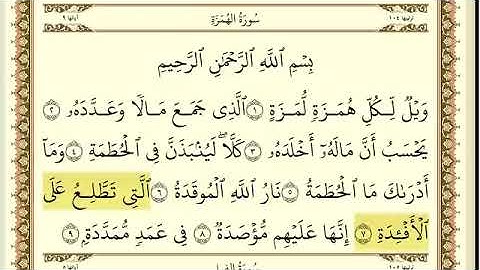 ترتيبها ١٠٤ سُورَةُ الهُمَزَةِ آياتها ٩
بِسْمِ ٱللَّهِ ٱلرَّحْمَٰنِ ٱلرَّحِيمِ
وَيْلٌ لِّكُلِّ هُمَزَةٍ لُّمَزَةٍ ١ ٱلَّذِى جَمَعَ مَالًا وَعَدَّدَهُۥ ٢
يَحْسَبُ أَنَّ مَالَهُۥٓ أَخْلَدَهُۥ ٣ كَلَّا ۖ لَيُنۢبَذَنَّ فِى ٱلْحُطَمَةِ ٤ وَمَآ
أَدْرَىٰكَ مَا ٱلْحُطَمَةُ ٥ نَارُ ٱللَّهِ ٱلْمُوقَدَةُ ٦ ٱلَّتِى تَطَّلِعُ عَلَى
ٱلْأَفْـِٔدَةِ ٧ إِنَّهَا عَلَيْهِم مُّؤْصَدَةٌ ٨ فِى عَمَدٍ مُّمَدَّدَةٍۭ ٩